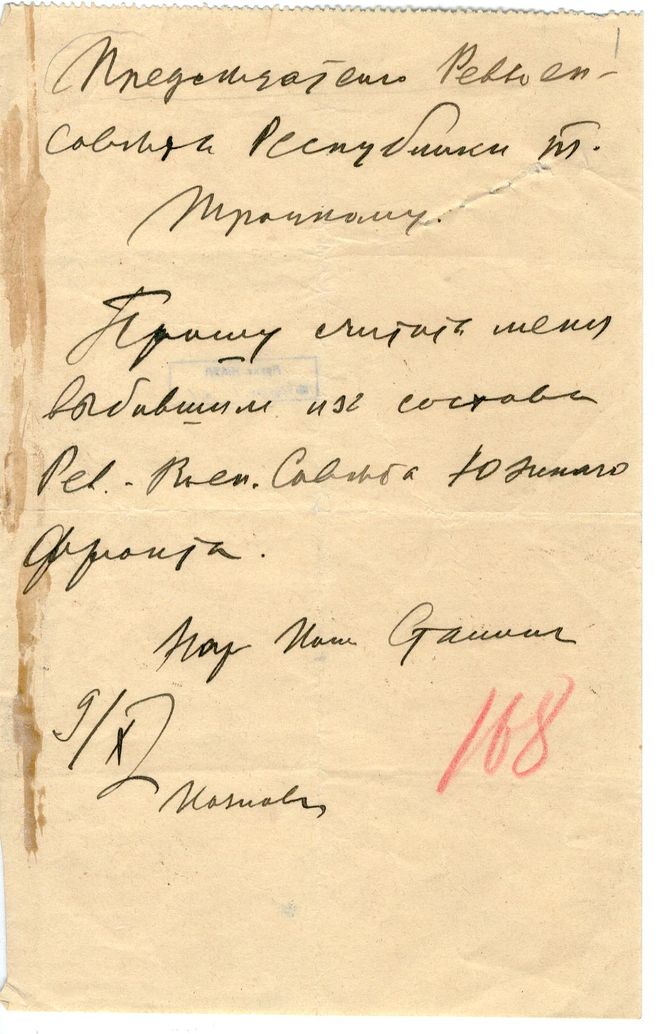 Председателю Ревоен-
совета Республики т.
Троцкому.
Прошу считать меня
выбывшим из состава
Рев.-Воен. Совета Южного
фронта.
Нар Ком Сталин
9/X
168